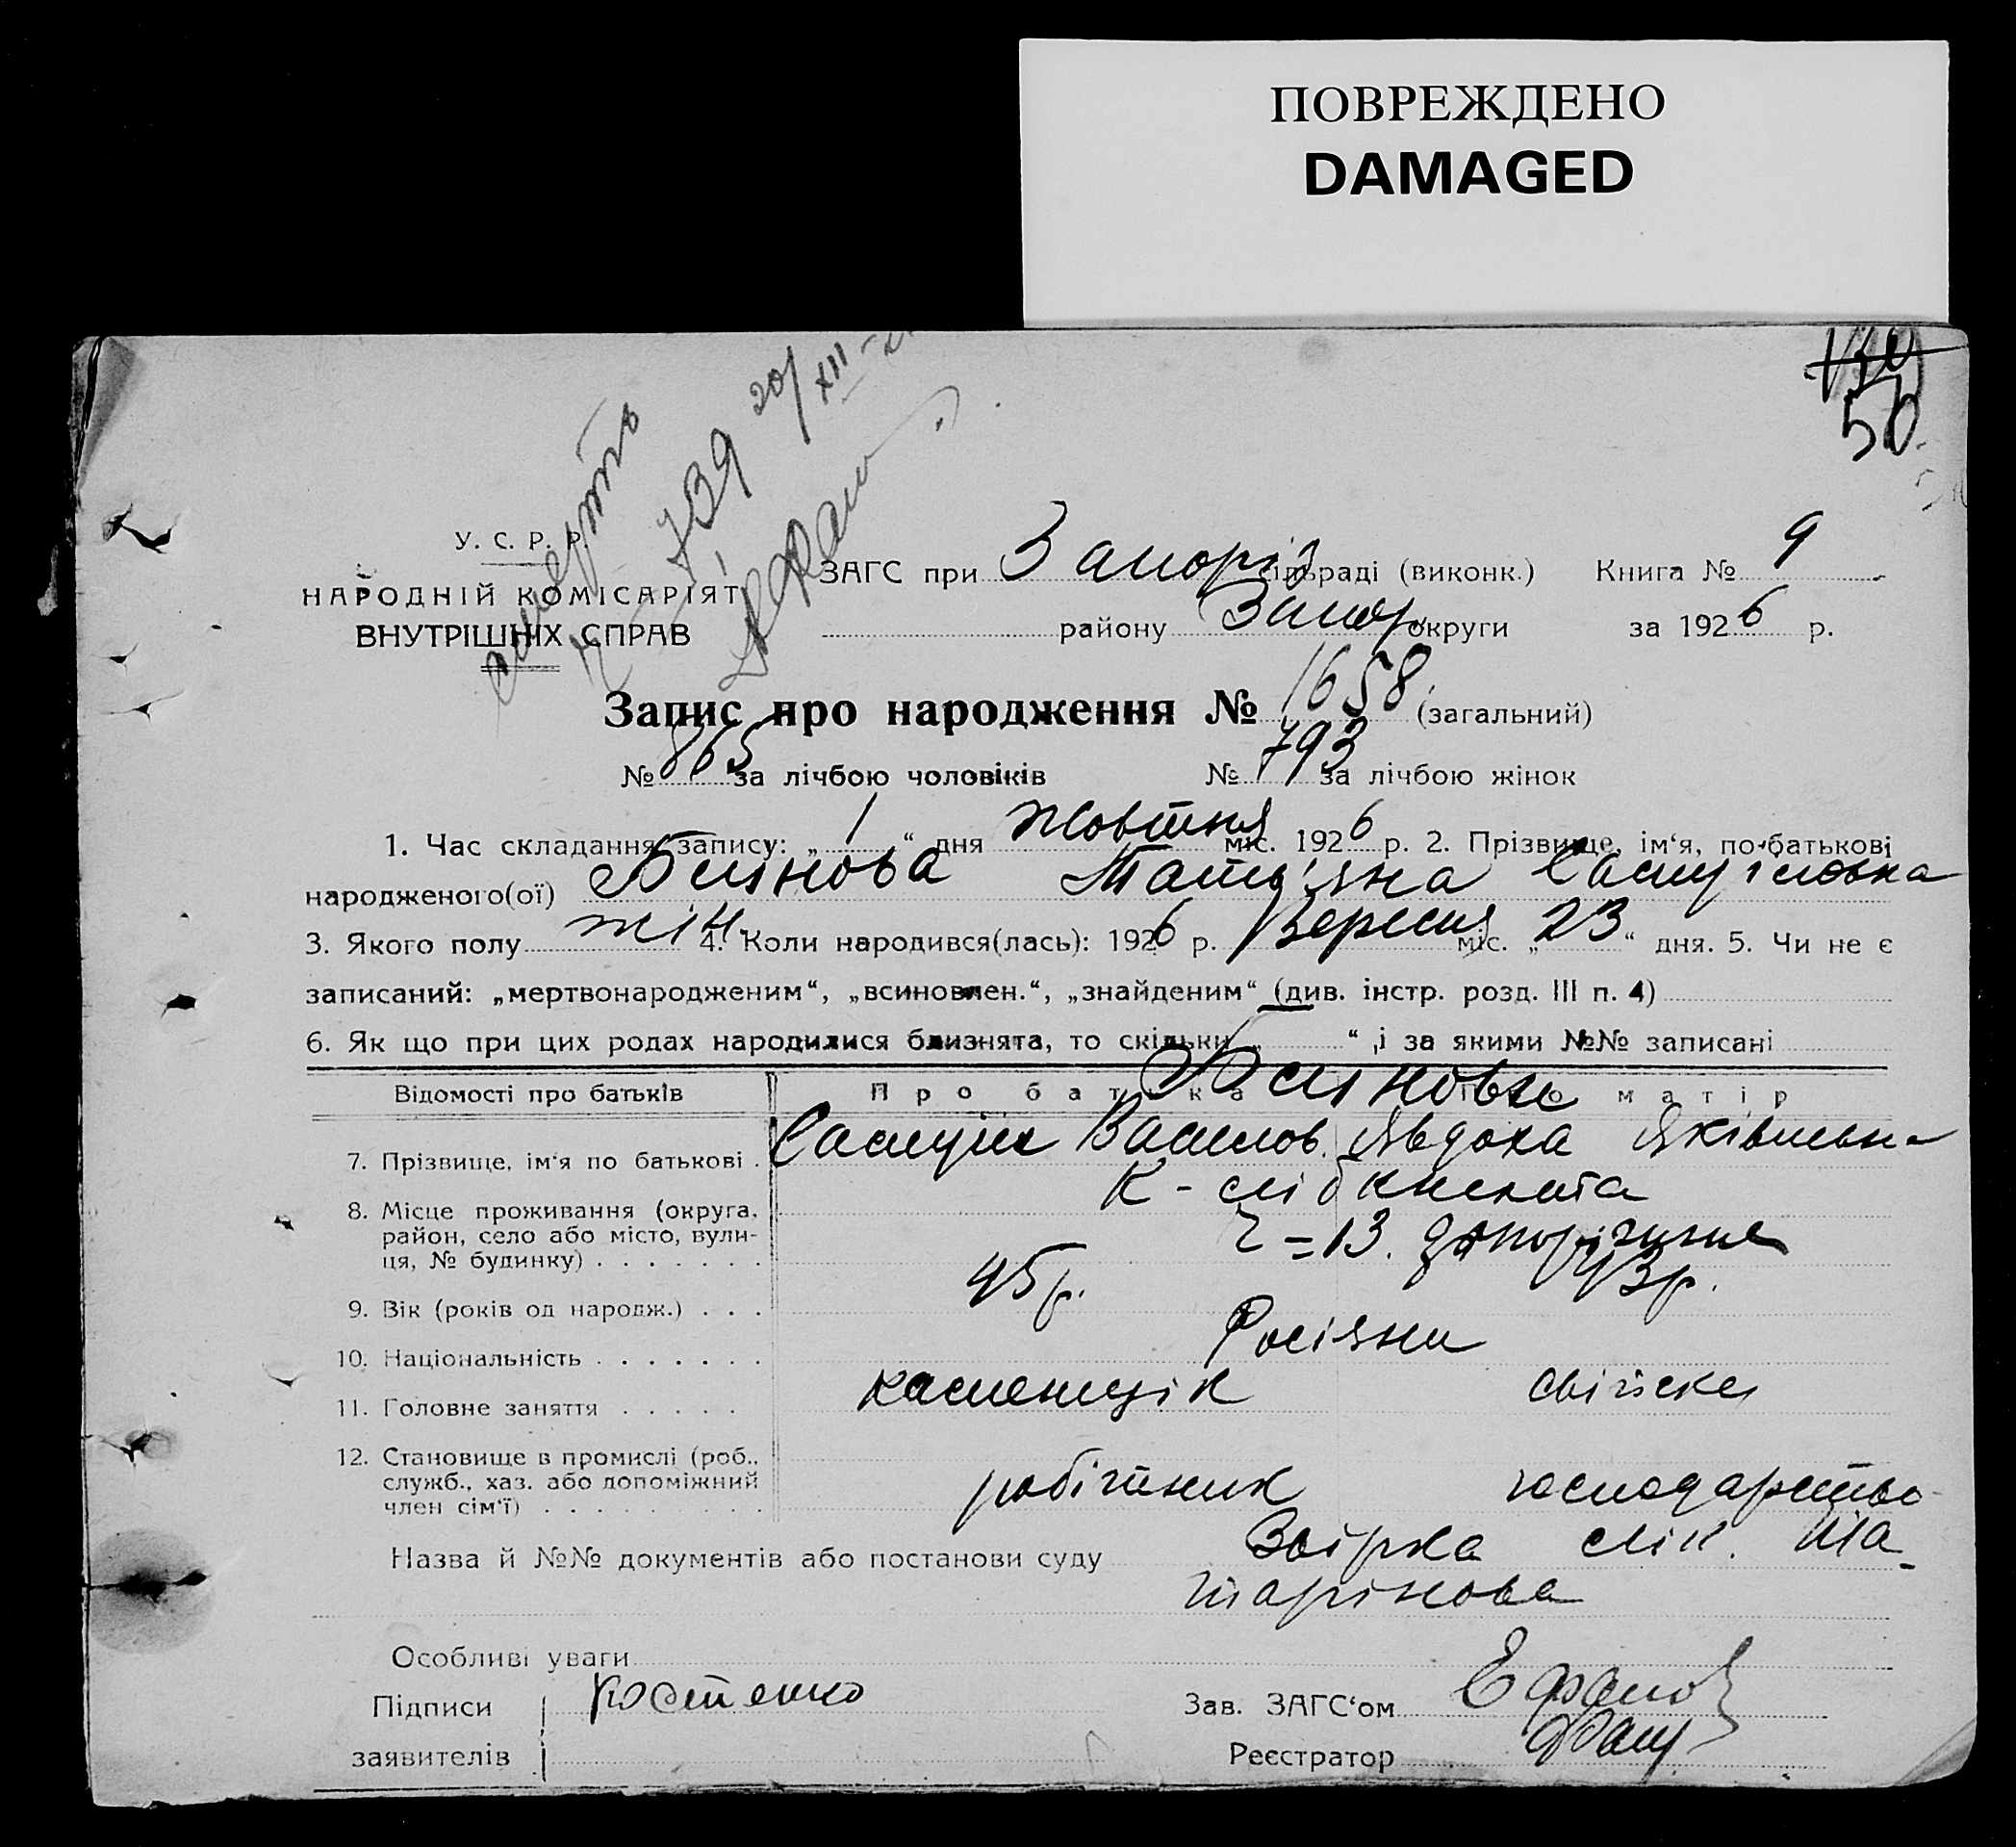 ПОВРЕЖДЕНО
DAMAGED
50
смерть
739 20/XII
У. С. Р. Р.
НАРОДНІЙ КОМІСАРІЯТ
ВНУТРІШНІХ СПРАВ
ЗАГС при Запоріз сільраді (виконк.) Книга № 9
району Запор. округи за 1926 р.
Запис про народження № 1658 (загальний)
№ 865 за лічбою чоловіків № 793 за лічбою жінок
1. Час складання запису: „ 1 “ дня жовтня міс. 1926 р. 2. Прізвище, ім‘я, по-батькові
народженого(ої) Тать'яна
3. Якого полу жін. 4. Коли народився(лась): 1926 р. Вересня міс. „ 23 “ дня. 5. Чи не є
записаний: „мертвонародженим“, „всиновлен.“, „знайденим“ (див. інстр. розд. III п. 4)
6. Як що при цих родах народилися близнята, то скільки „ “ і за якими №№ записані
Відомості про батьків Про батька Про матір
7. Прізвище, ім‘я по батькові . Явдоха Яківлевна
8. Місце проживання (округа,
район, село або місто, вули-
ця, № будинку) . . . . . . .
45 р. 43 р.
9. Вік (років од народж.) . . .
Росіяни
10. Національність . . . . . . .
11. Головне заняття . . . . . каменщік свійске
12. Становище в промислі (роб.,
служб., хаз. або допоміжний
член сім‘ї) . . . . . . . . . робітник господарство
Назва й №№ документів або постанови суду
Особливі уваги
Підписи Костенко Зав. ЗАГС‘ом
заявителів Реєстратор